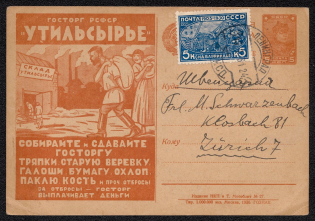 ГОСТОРГ РСФСР
"УТИЛЬСЫРЬЕ"
СКЛАД
УТИЛЬСЫРЬЯ
СОБИРАЙТЕ и СДАВАЙТЕ
ГОСТОРГУ
ТРЯПКИ СТАРУЮ ВЕРЕВКУ
ГАЛОШИ БУМАГУ ОХЛОП.
ПАКЛЮ КОСТЬ и ПРОЧ. ОТБРОСЫ
ЗА ОТБРОСЫ — ГОСТОРГ
ВЫПЛАЧИВАЕТ ДЕНЬГИ
ПОЧТА СССР
5К 5К
Куда
Швейцария
Frl. M. Schwarzenbach
Klosbach 81
Кому
Zürich 7